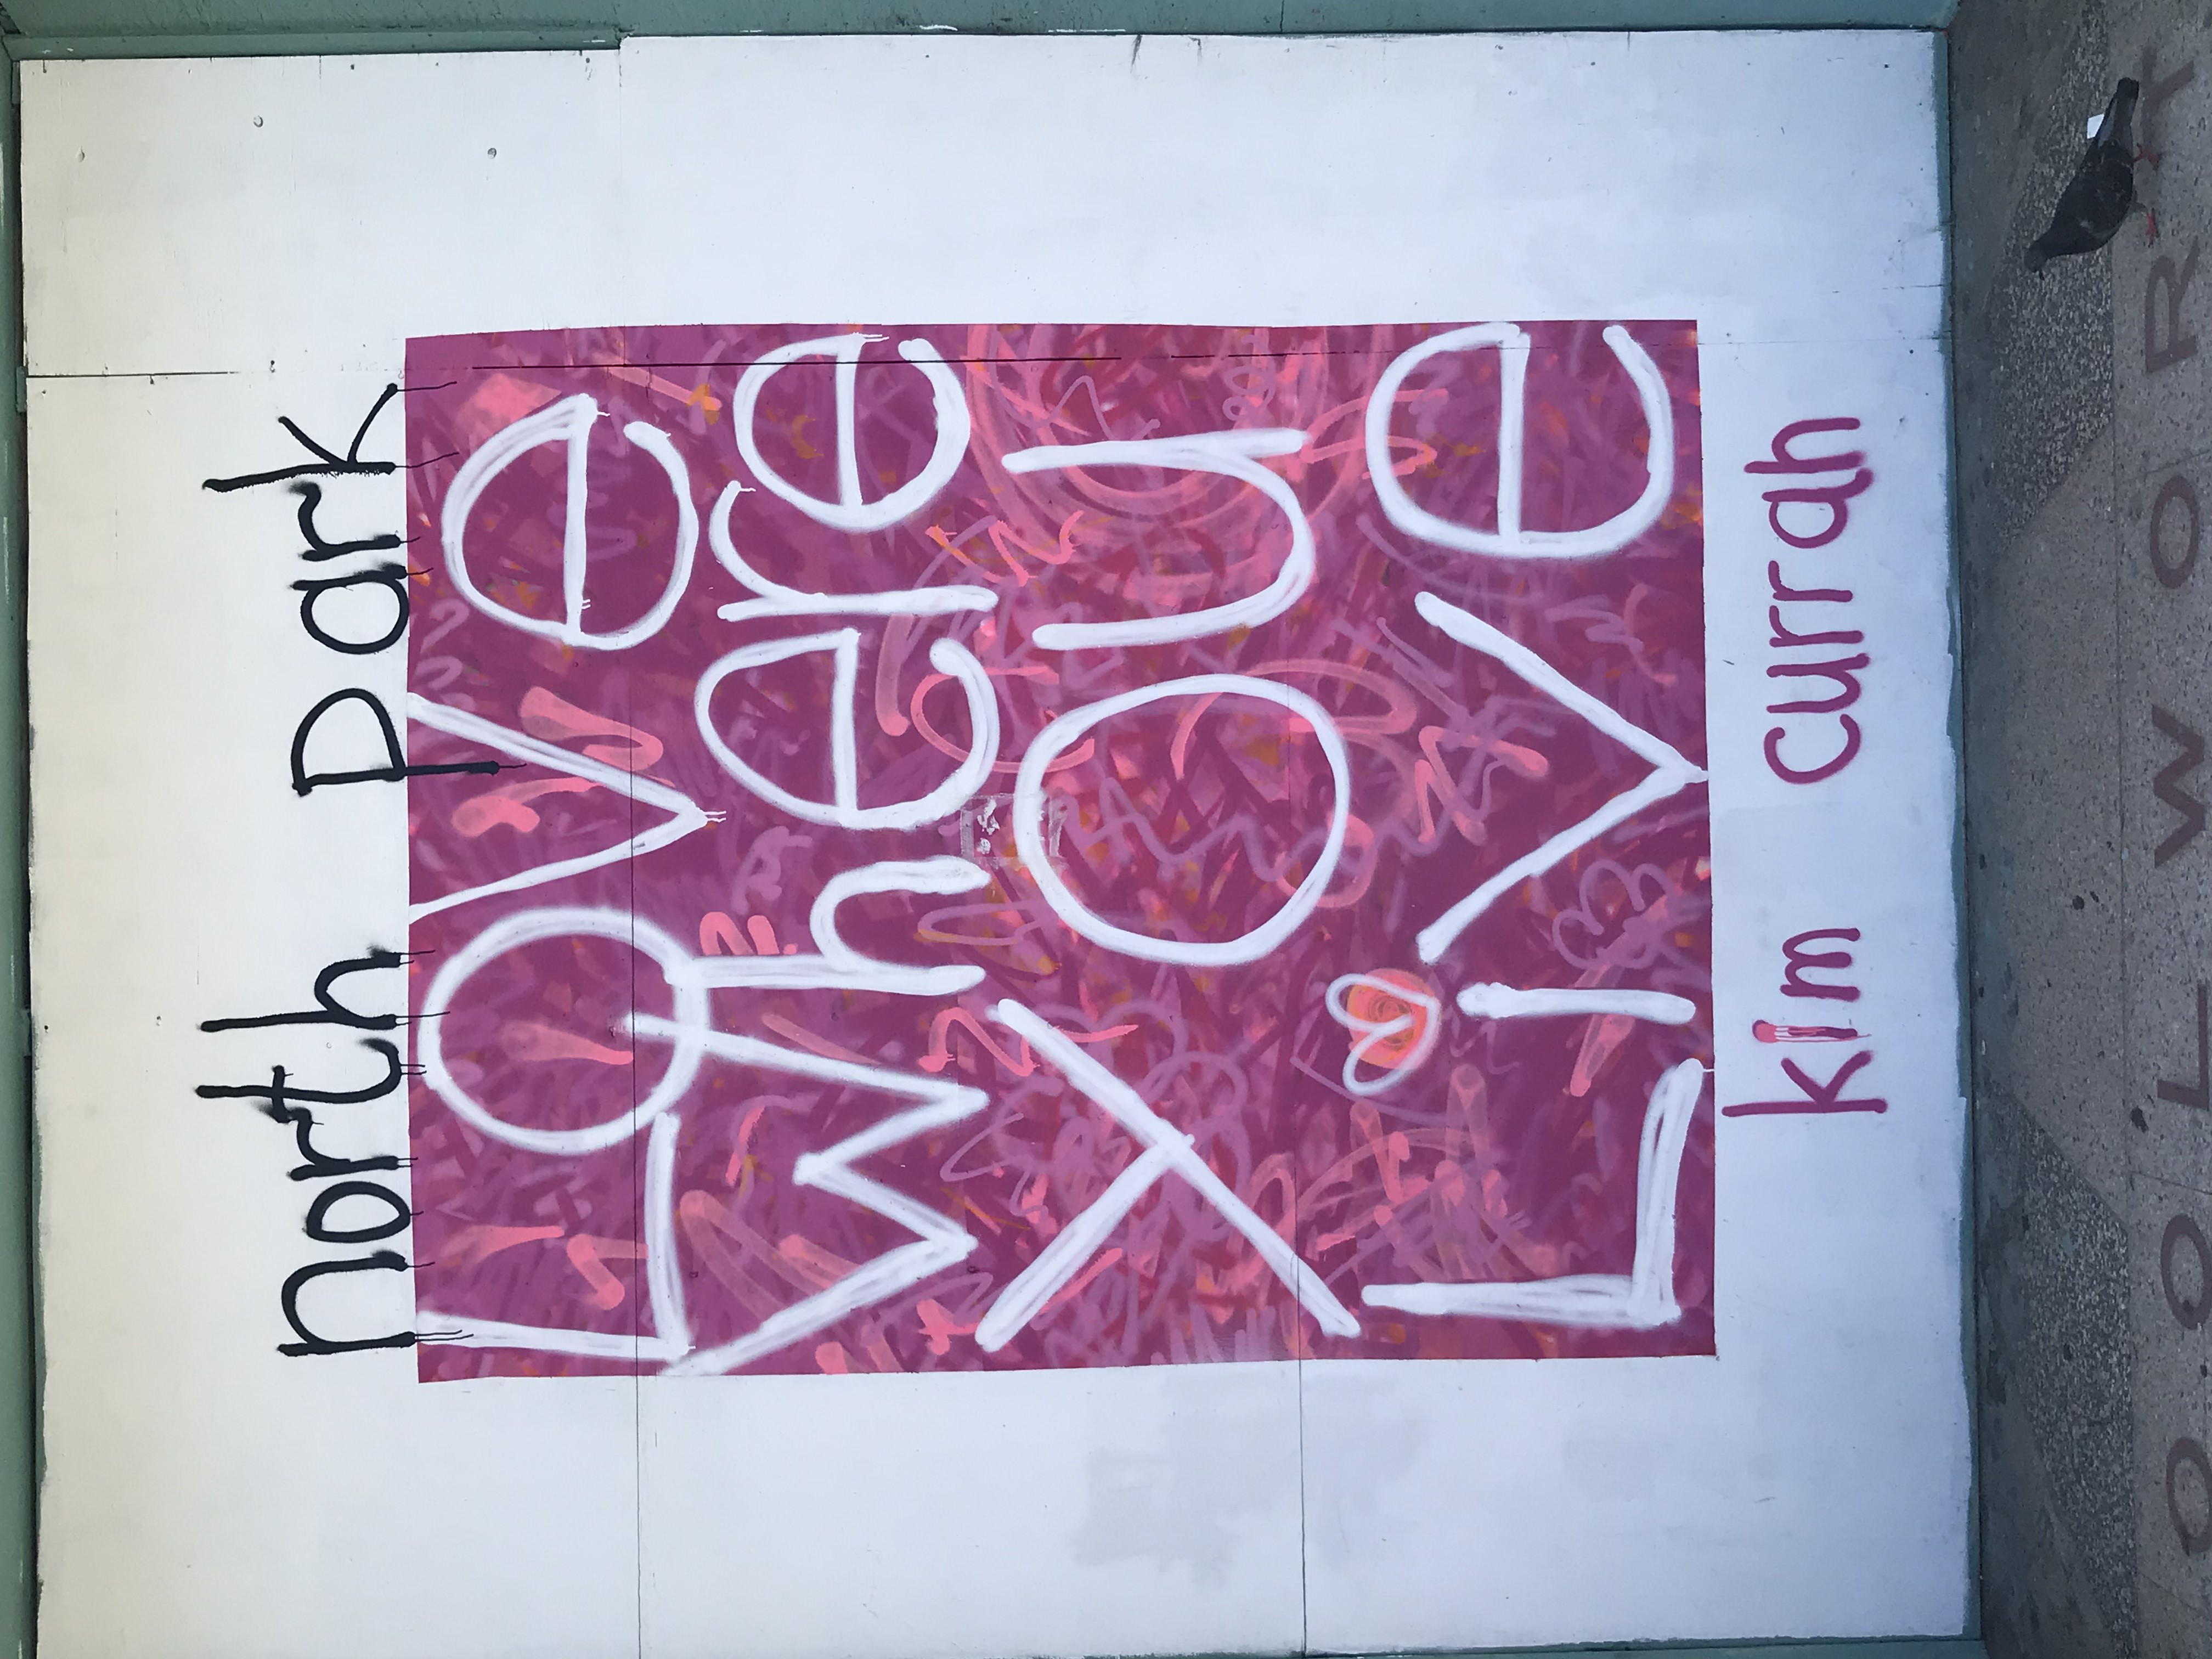 north park
Love
where
you
Live
kim curran
OOLWORT